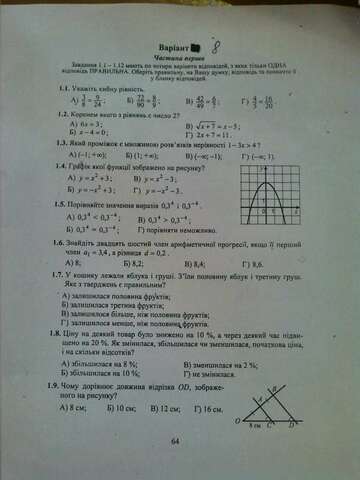 Варіант 8
Частина перша
Завдання 1.1 – 1.12 мають по чотири варіанти відповідей, з яких тільки ОДНА
відповідь ПРАВИЛЬНА. Оберіть правильну, на Вашу думку, відповідь та позначте її
у бланку відповідей.
1.1. Укажіть хибну рівність.
А) 3/8 = 9/24; Б) 72/90 = 8/9; В) 42/49 = 6/7; Г) 4/5 = 16/20.
1.2. Коренем якого з рівнянь є число 2?
А) 6x = 3; В) √(x + 7) = x − 5;
Б) x − 4 = 0; Г) 2x + 7 = 11.
1.3. Який проміжок є множиною розв'язків нерівності 1 − 3x > 4?
А) (−1; +∞); Б) (1; +∞); В) (−∞; −1); Г) (−∞; 1).
1.4. Графік якої функції зображено на рисунку?
А) y = x² + 3; В) y = x² − 3;
Б) y = −x² + 3; Г) y = −x² − 3.
1.5. Порівняйте значення виразів 0,3⁴ і 0,3⁻⁴.
А) 0,3⁴ < 0,3⁻⁴; В) 0,3⁴ > 0,3⁻⁴;
Б) 0,3⁴ = 0,3⁻⁴; Г) порівняти неможливо.
1.6. Знайдіть двадцять шостий член арифметичної прогресії, якщо її перший
член a₁ = 3,4, а різниця d = 0,2.
А) 8; Б) 8,2; В) 8,4; Г) 8,6.
1.7. У кошику лежали яблука і груші. З'їли половину яблук і третину груш.
Яке з тверджень є правильним?
А) залишилася половина фруктів;
Б) залишилася третина фруктів;
В) залишилося більше, ніж половина фруктів;
Г) залишилося менше, ніж половина фруктів.
1.8. Ціну на деякий товар було знижено на 10 %, а через деякий час підви-
щено на 20 %. Як змінилася, збільшилася чи зменшилася, початкова ціна,
і на скільки відсотків?
А) збільшилася на 8 %; В) зменшилася на 2 %;
Б) збільшилася на 10 %; Г) не змінилася.
1.9. Чому дорівнює довжина відрізка OD, зображе-
ного на рисунку?
А) 8 см; Б) 10 см; В) 12 см; Г) 16 см.
A
B
O
8 см
C
D
64